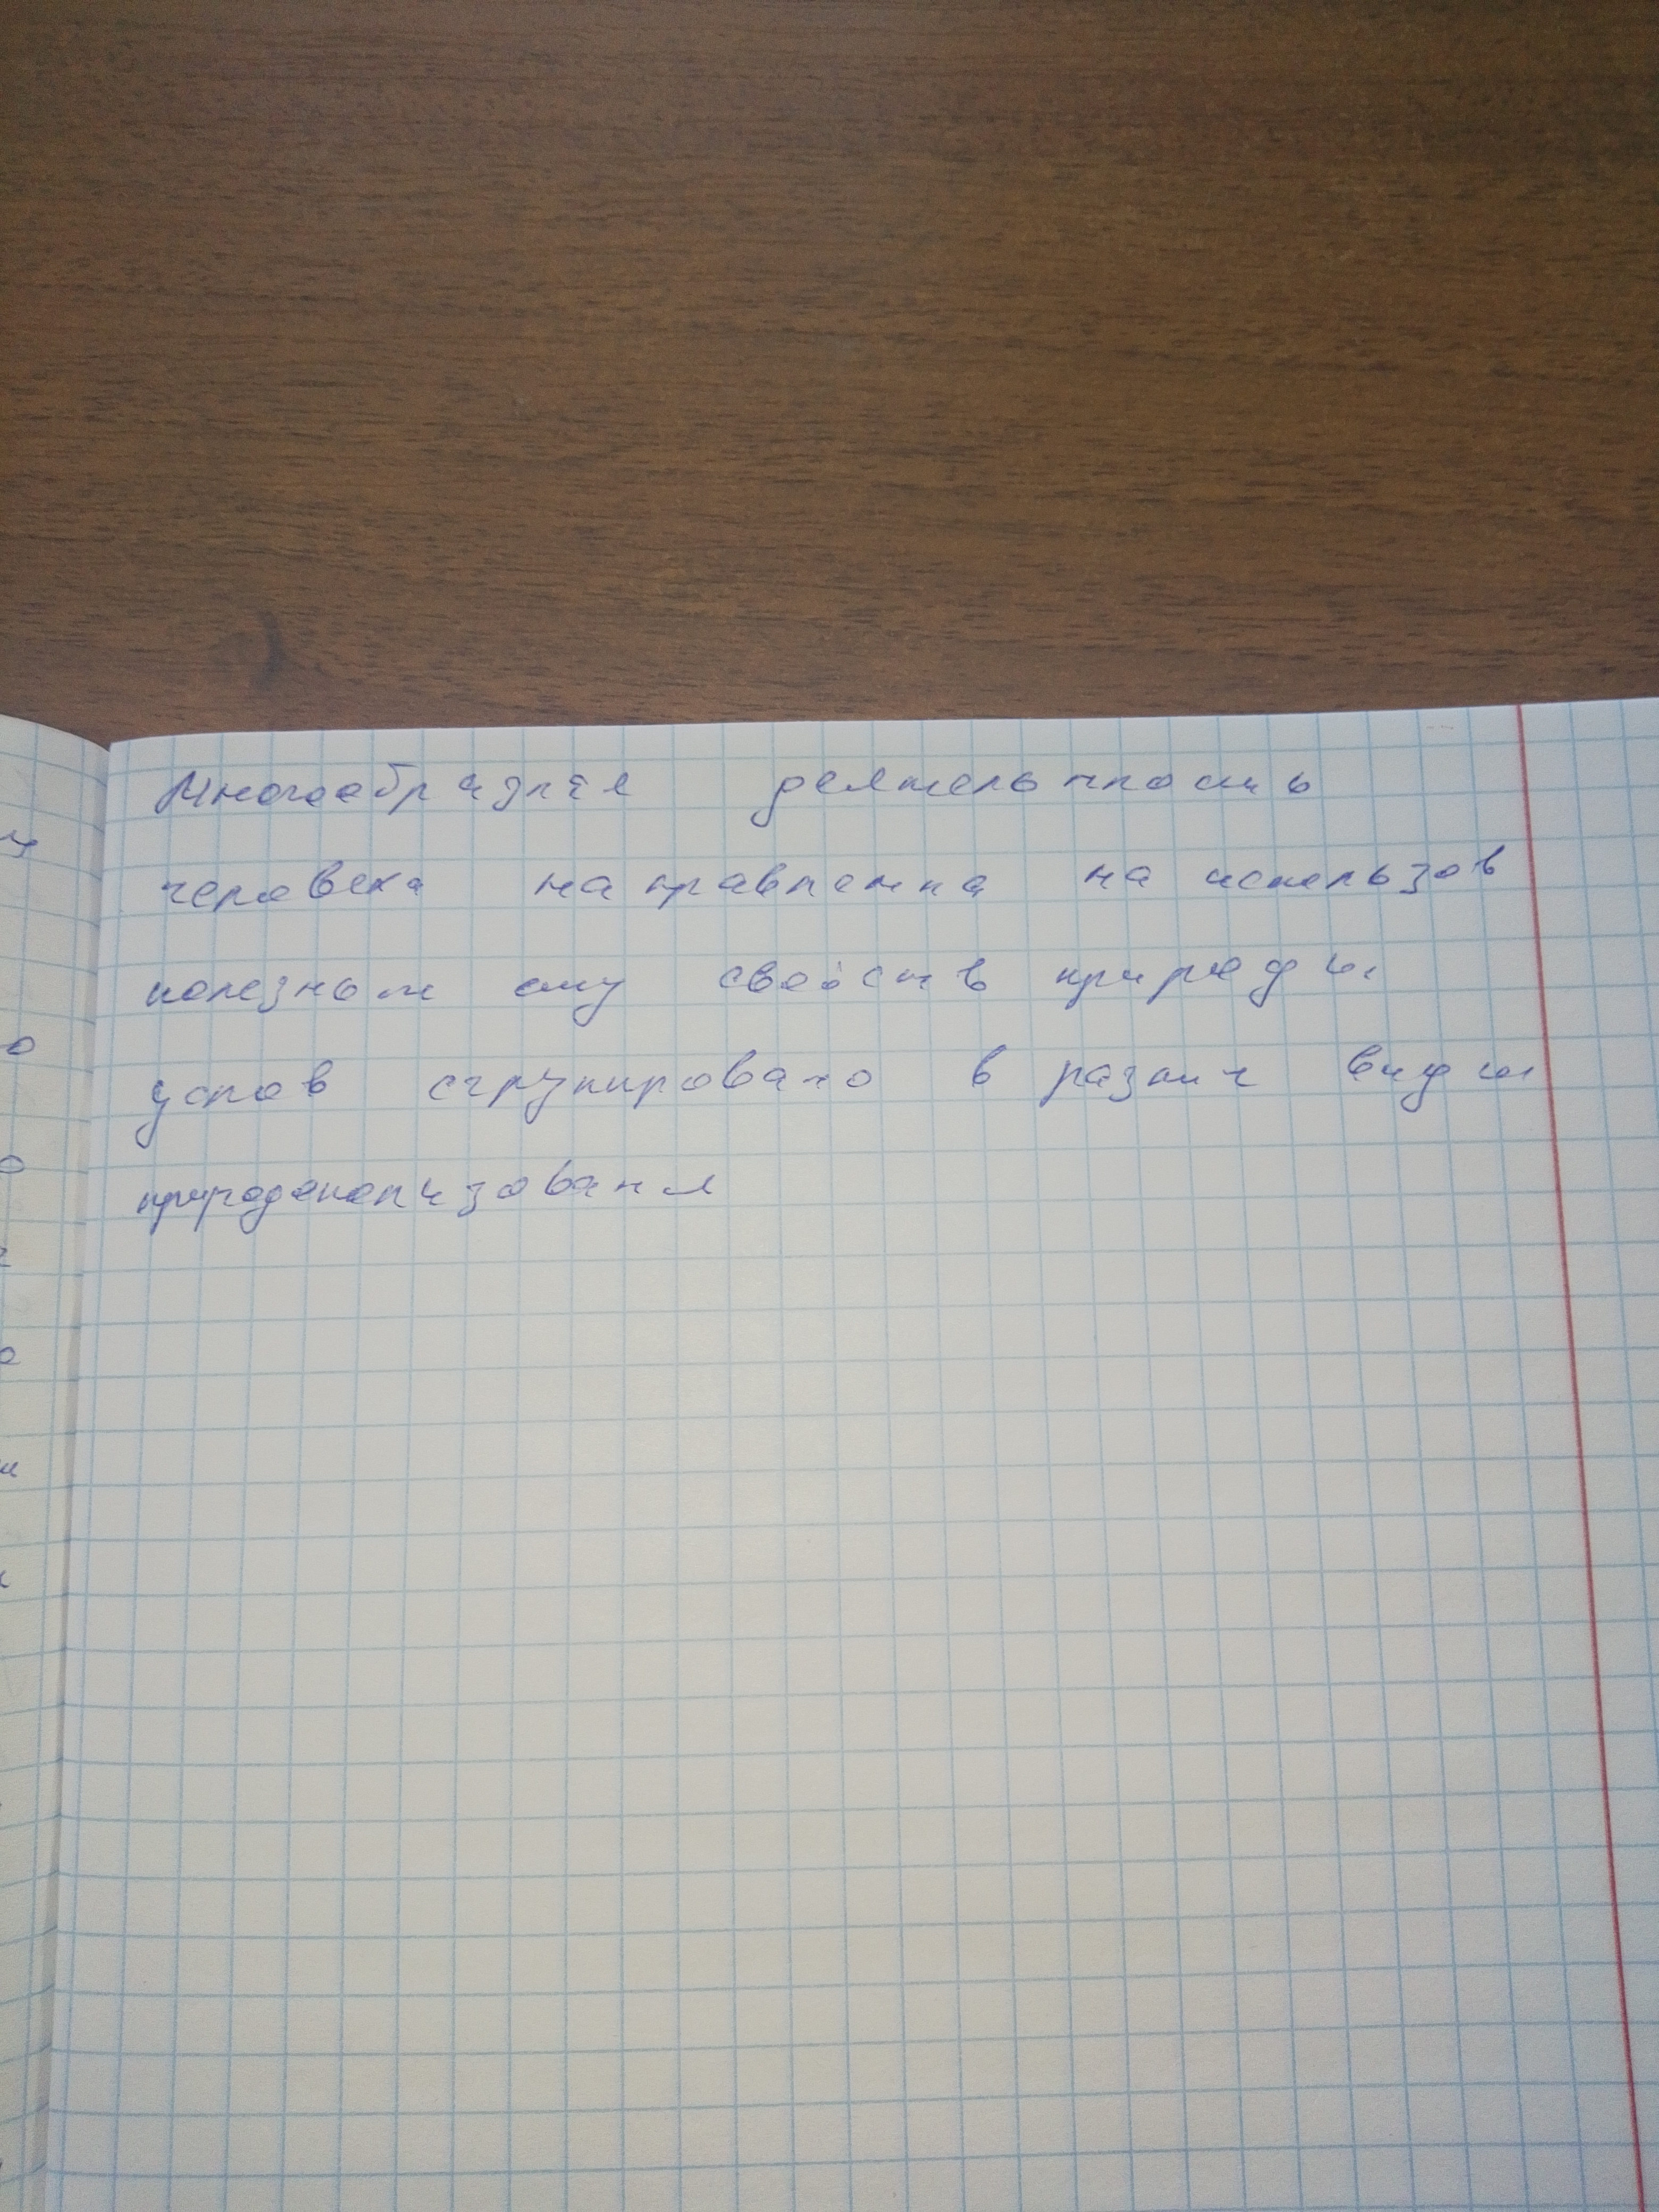 Многообразная деятельность
человека направленна на использов
полезных ему свойств природы
услов сгрупировано в различ виды
природопользования